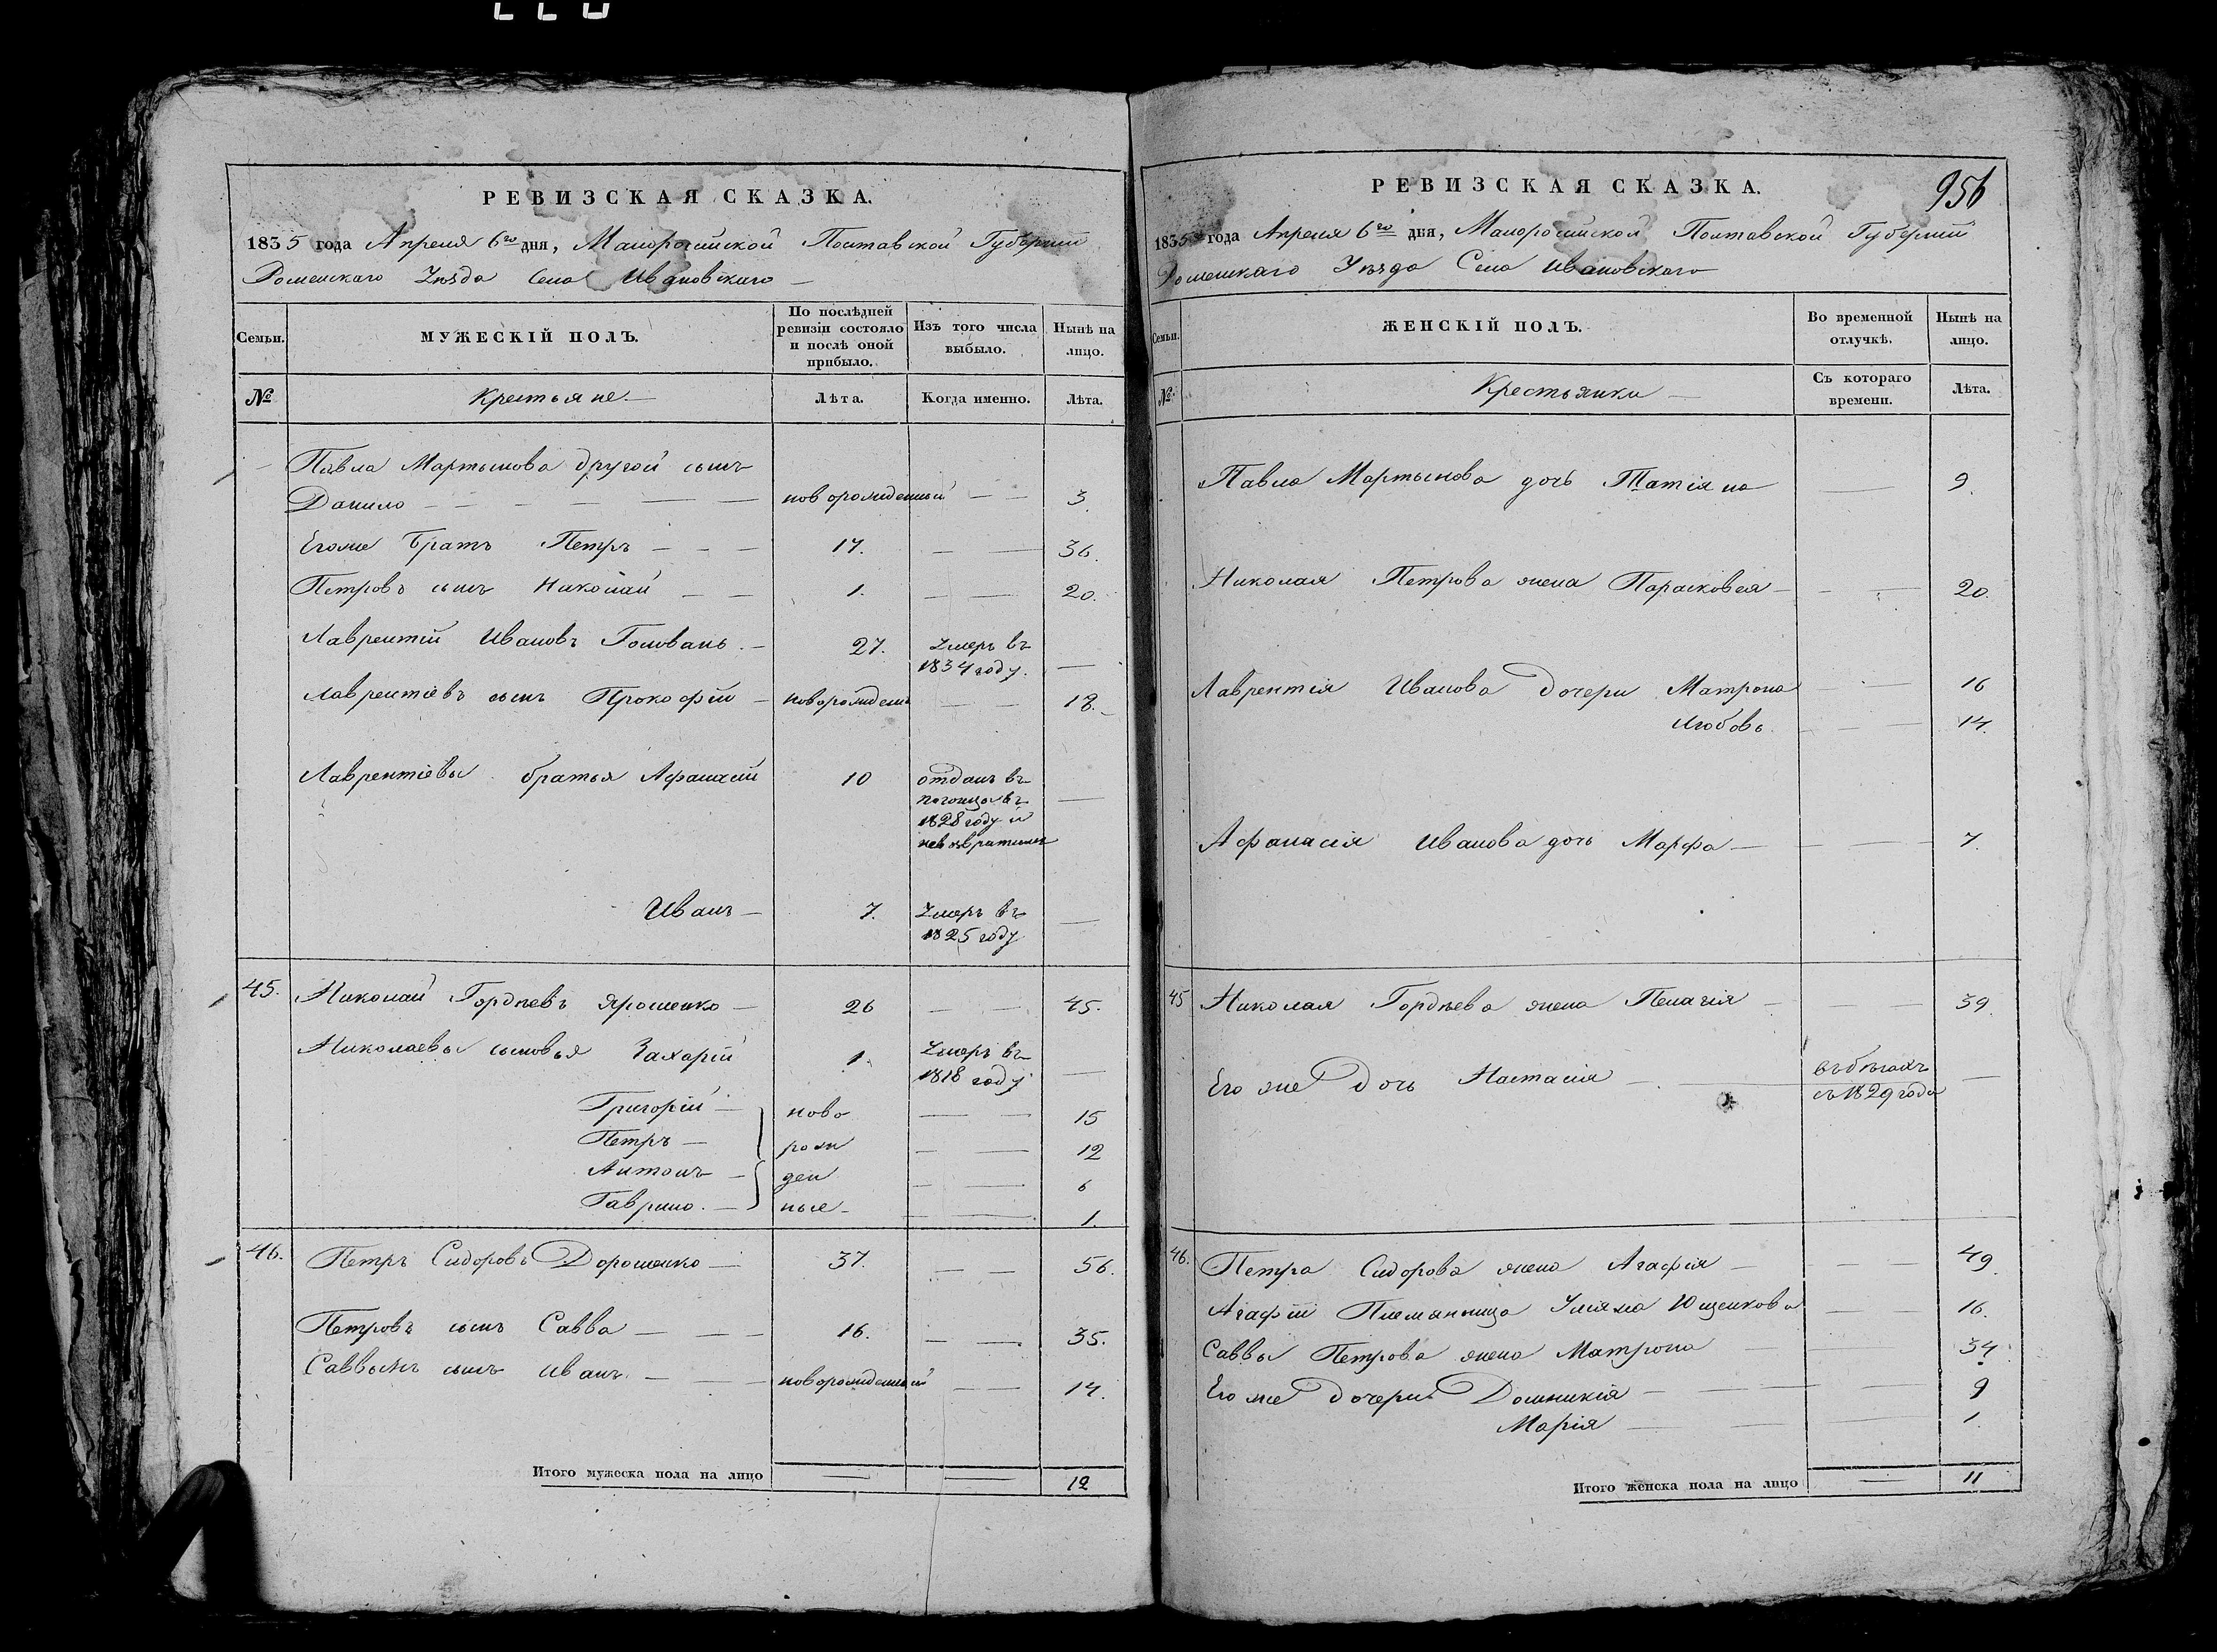 РЕВИЗСКАЯ СКАЗКА.
1835 года Апреля 6го дня, Малоросійской Полтавской Губерніи
Роменскаго Уѣзда Села Ивановскаго
Семьи.
МУЖЕСКІЙ ПОЛЪ.
По послѣдней ревизіи состояло и послѣ оной прибыло.
Изъ того числа выбыло.
Нынѣ на лицо.
№
Крестьяне
Лѣта.
Когда именно.
Лѣта.
Павла Мартынова другой сынъ
Данило новорожденный 3.
Егоже братъ Петръ 17. 36.
Петровъ сынъ Николай 1. 20.
Лаврентій Ивановъ Голованъ 27. Умеръ въ
1834 году.
Лаврентіевъ сынъ Прокофій новорожденъ 18.
Лаврентіевы братья Афанасій 10 отданъ въ
погонцы въ
1828 году и
невозвратился
Иванъ 7. Умеръ въ
1825 году
45. Николай Гордѣевъ Ярошенко 26 45.
Николаевы сыновья Захарій 1. Умеръ въ
1818 году
Григорій ново 15
Петръ рож 12
Антонъ ден 6
Гаврило ные 1.
46. Петръ Сидоровъ Дорошенко 37. 56.
Петровъ сынъ Савва 16. 35.
Саввынъ сынъ Иванъ новорожденный 14.
Итого мужеска пола на лицо 12
РЕВИЗСКАЯ СКАЗКА.
956
1835 года Апреля 6го дня, Малоросійской Полтавской Губерніи
Роменскаго Уѣзда Села Ивановскаго
Семьи.
ЖЕНСКІЙ ПОЛЪ.
Во временной отлучкѣ.
Нынѣ на лицо.
№.
Крестьянки
Съ котораго времени.
Лѣта.
Павла Мартынова дочь Татіяна 9.
Николая Петрова жена Парасковея 20.
Лаврентія Иванова дочери Матрона 16
Любовь 14.
Афанасія Иванова дочь Марфа 7.
45 Николая Гордѣева жена Пелагія 39.
Его же дочь Настасія въ бѣгахъ
съ 1829 года
46. Петра Сидорова жена Агафія 49.
Агафіи Племянница Уліяна Ющенкова 16.
Саввы Петрова жена Матрона 34.
Его же дочери Домникія 9
Марія 1.
Итого женска пола на лицо 11